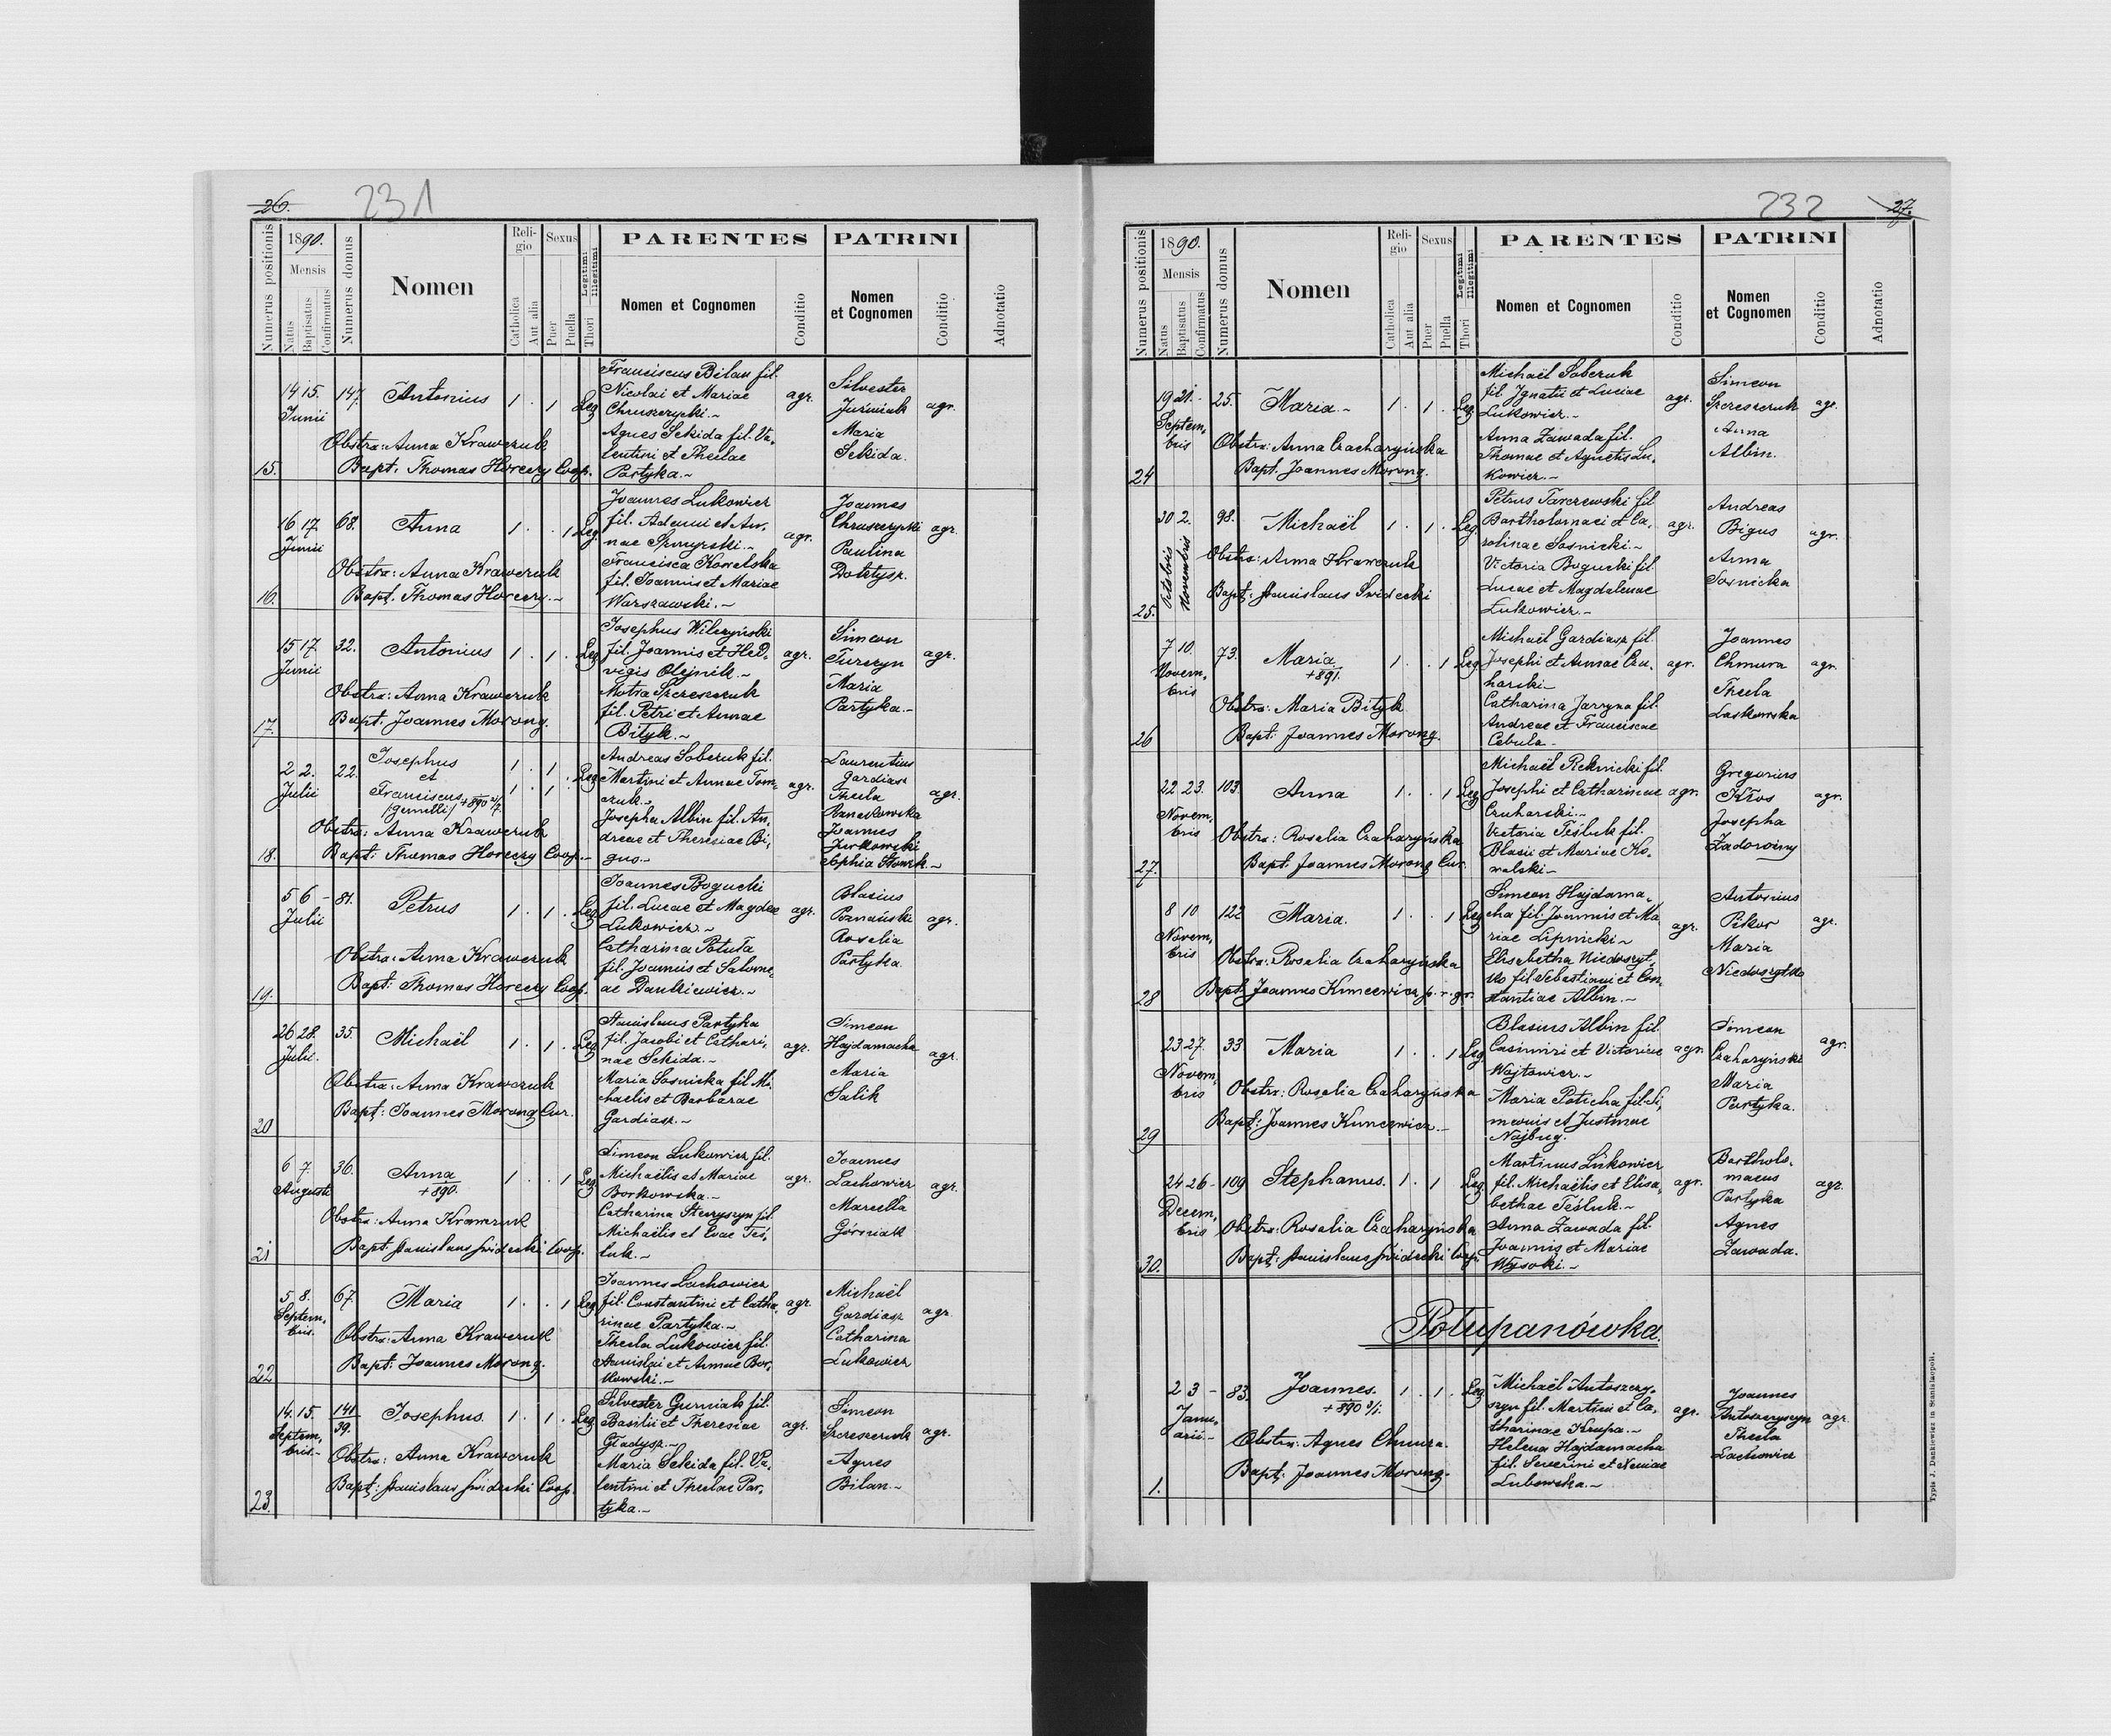 26.
231
Numerus positionis
1890.
Mensis
Natus
Baptisatus
Confirmatus
Numerus domus
Nomen
Religio
Catholica
Aut alia
Sexus
Puer
Puella
Thori
Legitimi
Illegitimi
PARENTES
Nomen et Cognomen
Conditio
PATRINI
Nomen et Cognomen
Conditio
Adnotatio
15.
14 15. Junii
147.
Antonius
1 . 1 . Leg.
Obstra: Anna Krawczuk
Bapt. Thomas Horeczy Coop.
Franciscus Bilan fil.
Nicolai et Mariae
Chruszczycki.~
Agnes Sekida fil. Va,
lentini et Theclae
Partyka.~
agr.
Silvester
Jurniak
Maria
Sekida.
agr.
16.
16 17 Junii
68.
Anna
1 . . 1 Leg.
Obstra: Anna Krawczuk
Bapt. Thomas Horeczy.~
Joannes Lukowicz
fil. Adami et An,
nae Szmyrski.~
Francisca Kowalska
fil. Joannis et Mariae
Warszawski.~
agr.
Joannes
Chruszczycki
Paulina
agr.
17.
15 17 Junii
32.
Antonius
1 . 1 . Leg
Obstra: Anna Krawczuk
Bapt. Joannes Morong.
Josephus Wilczyński
fil. Joannis et Hed,
vigis Olejnik.~
Motra Szereszczuk
fil. Petri et Annae
Bityk.~
agr.
Simeon
Turczyn
Maria
Partyka.~
agr.
18.
2 2. Julii
22.
Josephus
et
Franciscus +890
(gemelli)
1 . 1 . Leg
1 . 1 .
Obstra: Anna Krawczuk
Bapt: Thomas Horeczy Coop.~
Andreas Soberuk fil.
Martini et Annae Tom,
czuk.~
Josepha Albin fil. An,
dreae et Theresiae Bi,
gus.~
agr.
Laurentius
Gardiasz
Thecla
Joannes
Jurkowski
agr.
19.
5 6 - Julii
81.
Petrus
1 . 1 . Leg
Obstra: Anna Krawczuk
Bapt: Thomas Horeczy Coop.
Joannes Bogucki
fil. Lucae et Magdae
Lukowicz.~
Catharina Potuła
fil. Joannis et Salome,
ae Dankiewicz.~
agr.
Blasius
Poznański
Rosalia
Partyka
agr.
20
26 28. Julii.
35.
Michaël
1 . 1 . Leg
Obstra: Anna Krawczuk
Bapt: Joannes Morong Cur.
Stanislaus Partyka
fil. Jacobi et Cathari,
nae Sekida.~
Maria Sosnicka fil. Mi,
chaelis et Barbarae
Gardiasz.~
agr.
Simeon
Hajdamacha
Maria
Salik
agr.
21
6 7. Augusti
36.
Anna
+890.
1 . . 1 Leg
Obstra: Anna Krawczuk
Bapt: Stanislaus Świdecki Coop.
Simeon Lukowicz fil.
Michaëlis et Mariae
Borkowska.~
Michaëlis et Evae Teś,
luk.~
agr.
Joannes
Lachowicz
Marcella
Górniak
agr.
22
5 8. Septem, bris.
67.
Maria
1 . . 1 Leg
Obstra: Anna Krawczuk
Bapt: Joannes Morong.
Joannes Lachowicz
fil. Constantini et Catha,
rinae Partyka.~
Thecla Lukowicz fil.
Stanislai et Annae Bor,
kowski.~
agr.
Michaël
Gardiasz
Catharina
Lukowicz
agr.
23.
14. 15. Septem, bris.~
141
39.
Josephus.
1 . 1 . Leg
Obstra: Anna Krawczuk
Bapt: Stanislaus Świdecki Coop.
Silvester Gurniak fil.
Basilii et Theresiae
Gładysz.~
Maria Sekida fil. Va,
lentini et Theclae Par,
tyka.~
agr.
Simeon
Szereszczuk
Agnes
Bilan.~
agr.
232
27.
Numerus positionis
1890.
Mensis
Natus
Baptisatus
Confirmatus
Numerus domus
Nomen
Religio
Catholica
Aut alia
Sexus
Puer
Puella
Thori
Legitimi
Illegitimi
PARENTES
Nomen et Cognomen
Conditio
PATRINI
Nomen et Cognomen
Conditio
Adnotatio
24
19 21. - Septem, bris
25.
Maria.~
1 . 1 . Leg
Obstra: Anna Czacharyńska
Bapt. Joannes Morong.
Michaël Soberuk
fil. Ignatii et Luciae
Lukowicz.~
Anna Zawada fil.
Thomae et Agnetis Lu,
kowicz.~
agr.
Simeon
Szereszczuk
Anna
Albin.
agr.
25.
30 2. Octobris Novembris
98.
Michaël
1 . 1 . Leg
Obstra: Anna Krawczuk
Bapt: Stanislaus Świdecki
Petrus Tarczewski fil
Bartholomaei et Ca,
rolinae Sosnicki.~
Victoria Bogucki fil.
Lucae et Magdalenae
Lukowicz.~
agr.
Andreas
Bigus
Anna
Sosnicka
agr.
26
7 10. Novem, bris
73.
Maria
+891.
1 . . 1 Leg
Obstra: Maria Bityk
Bapt: Joannes Morong.
Michaël Gardiasz fil.
Josephi et Annae Czu,
harski~
Catharina Jarzyna fil.
Andreae et Franciscae
Cebula.~
agr.
Joannes
Chmura
Thecla
Laskowska
agr.
27.
22 23. Novem, bris
103.
Anna
1 . . 1 Leg
Obstra: Rosalia Czaharyńska
Bapt: Joannes Morong Cur.
Michaël Reknicki fil.
Josephi et Catharinae
Czuharski.~
Victoria Teśluk fil.
Blasii et Mariae Ko,
walski~
agr.
Gregorius
Kros
Josepha
Zadorożny
agr.
28
8 10 Novem, bris
122
Maria.
1 . . 1 Leg
Obstra: Rosalia Czaharyńska
Bapt: Joannes Kuncewicz
Simeon Hajdama,
cha fil. Joannis et Ma,
riae Lipnicki~
Elisabetha Niedoszyt,
ko fil. Sebastiani et Con,
stantiae Albin.~
agr.
Antonius
Pikor
Maria
Niedoszytko
agr.
29
23 27. Novem, bris
33
Maria
1 . . 1 Leg
Obstra: Rosalia Czaharyńska
Bapt: Joannes Kuncewicz.~
Blasius Albin fil.
Casimiri et Victoriae
Wojtowicz.~
Maria Poticha fil. Si,
meonis et Justinae
Najbug.
agr.
Simeon
Czaharyński
Maria
Partyka.
agr.
30.
24 26 - Decem, bris
109
Stephanus.
1 . 1 Leg
Obstra: Rosalia Czaharyńska
Bapt: Stanislaus Świdecki Coop.
Martinus Lukowicz
fil. Michaëlis et Elisa,
bethae Teśluk.~
Anna Zawada fil
Joannis et Mariae
Wysoki.~
agr.
Bartholo,
maeus
Partyka
Agnes
Zawada.
agr.
Potupanówka.
1.
2 3 - Janu, arii~
83.
Joannes.
+890 3/1.
1 . 1 . Leg
Obstra: Agnes Chmura.
Bapt: Joannes Morong.
Michaël Antoszczy,
szyn fil. Martini et Ca,
tharinae Krupa.~
Helena Hajdamacha
fil. Severini et Xeniae
Lubowska.~
agr.
Joannes
Antoszczyszyn
Thecla
Lachowicz
agr.
Typis J. Dankiewicz in Stanislaopoli.